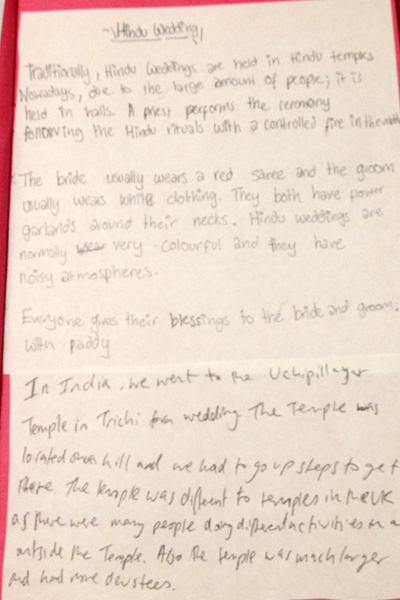 ~ Hindu Wedding ~
Traditionally, Hindu Weddings are held in Hindu temples
Nowadays, due to the large amount of people; it is
held in halls. A priest performs the ceremony
following the Hindu rituals with a controlled fire in the
The bride usually wears a red saree and the groom
usually wears white clothing. They both have flower
garlands around their necks. Hindu weddings are
normally very colourful and they have
noisy atmospheres.
Everyone gives their blessings to the bride and groom.
with paddy
In India, we went to the Uchipillayar
Temple in Trichi wedding The Temple was
located on a hill and we had to go up steps to get
there. The temple was different to temples in the UK
as there were many people doing different activities
outside the Temple. Also the temple was much larger
and had more devotees.